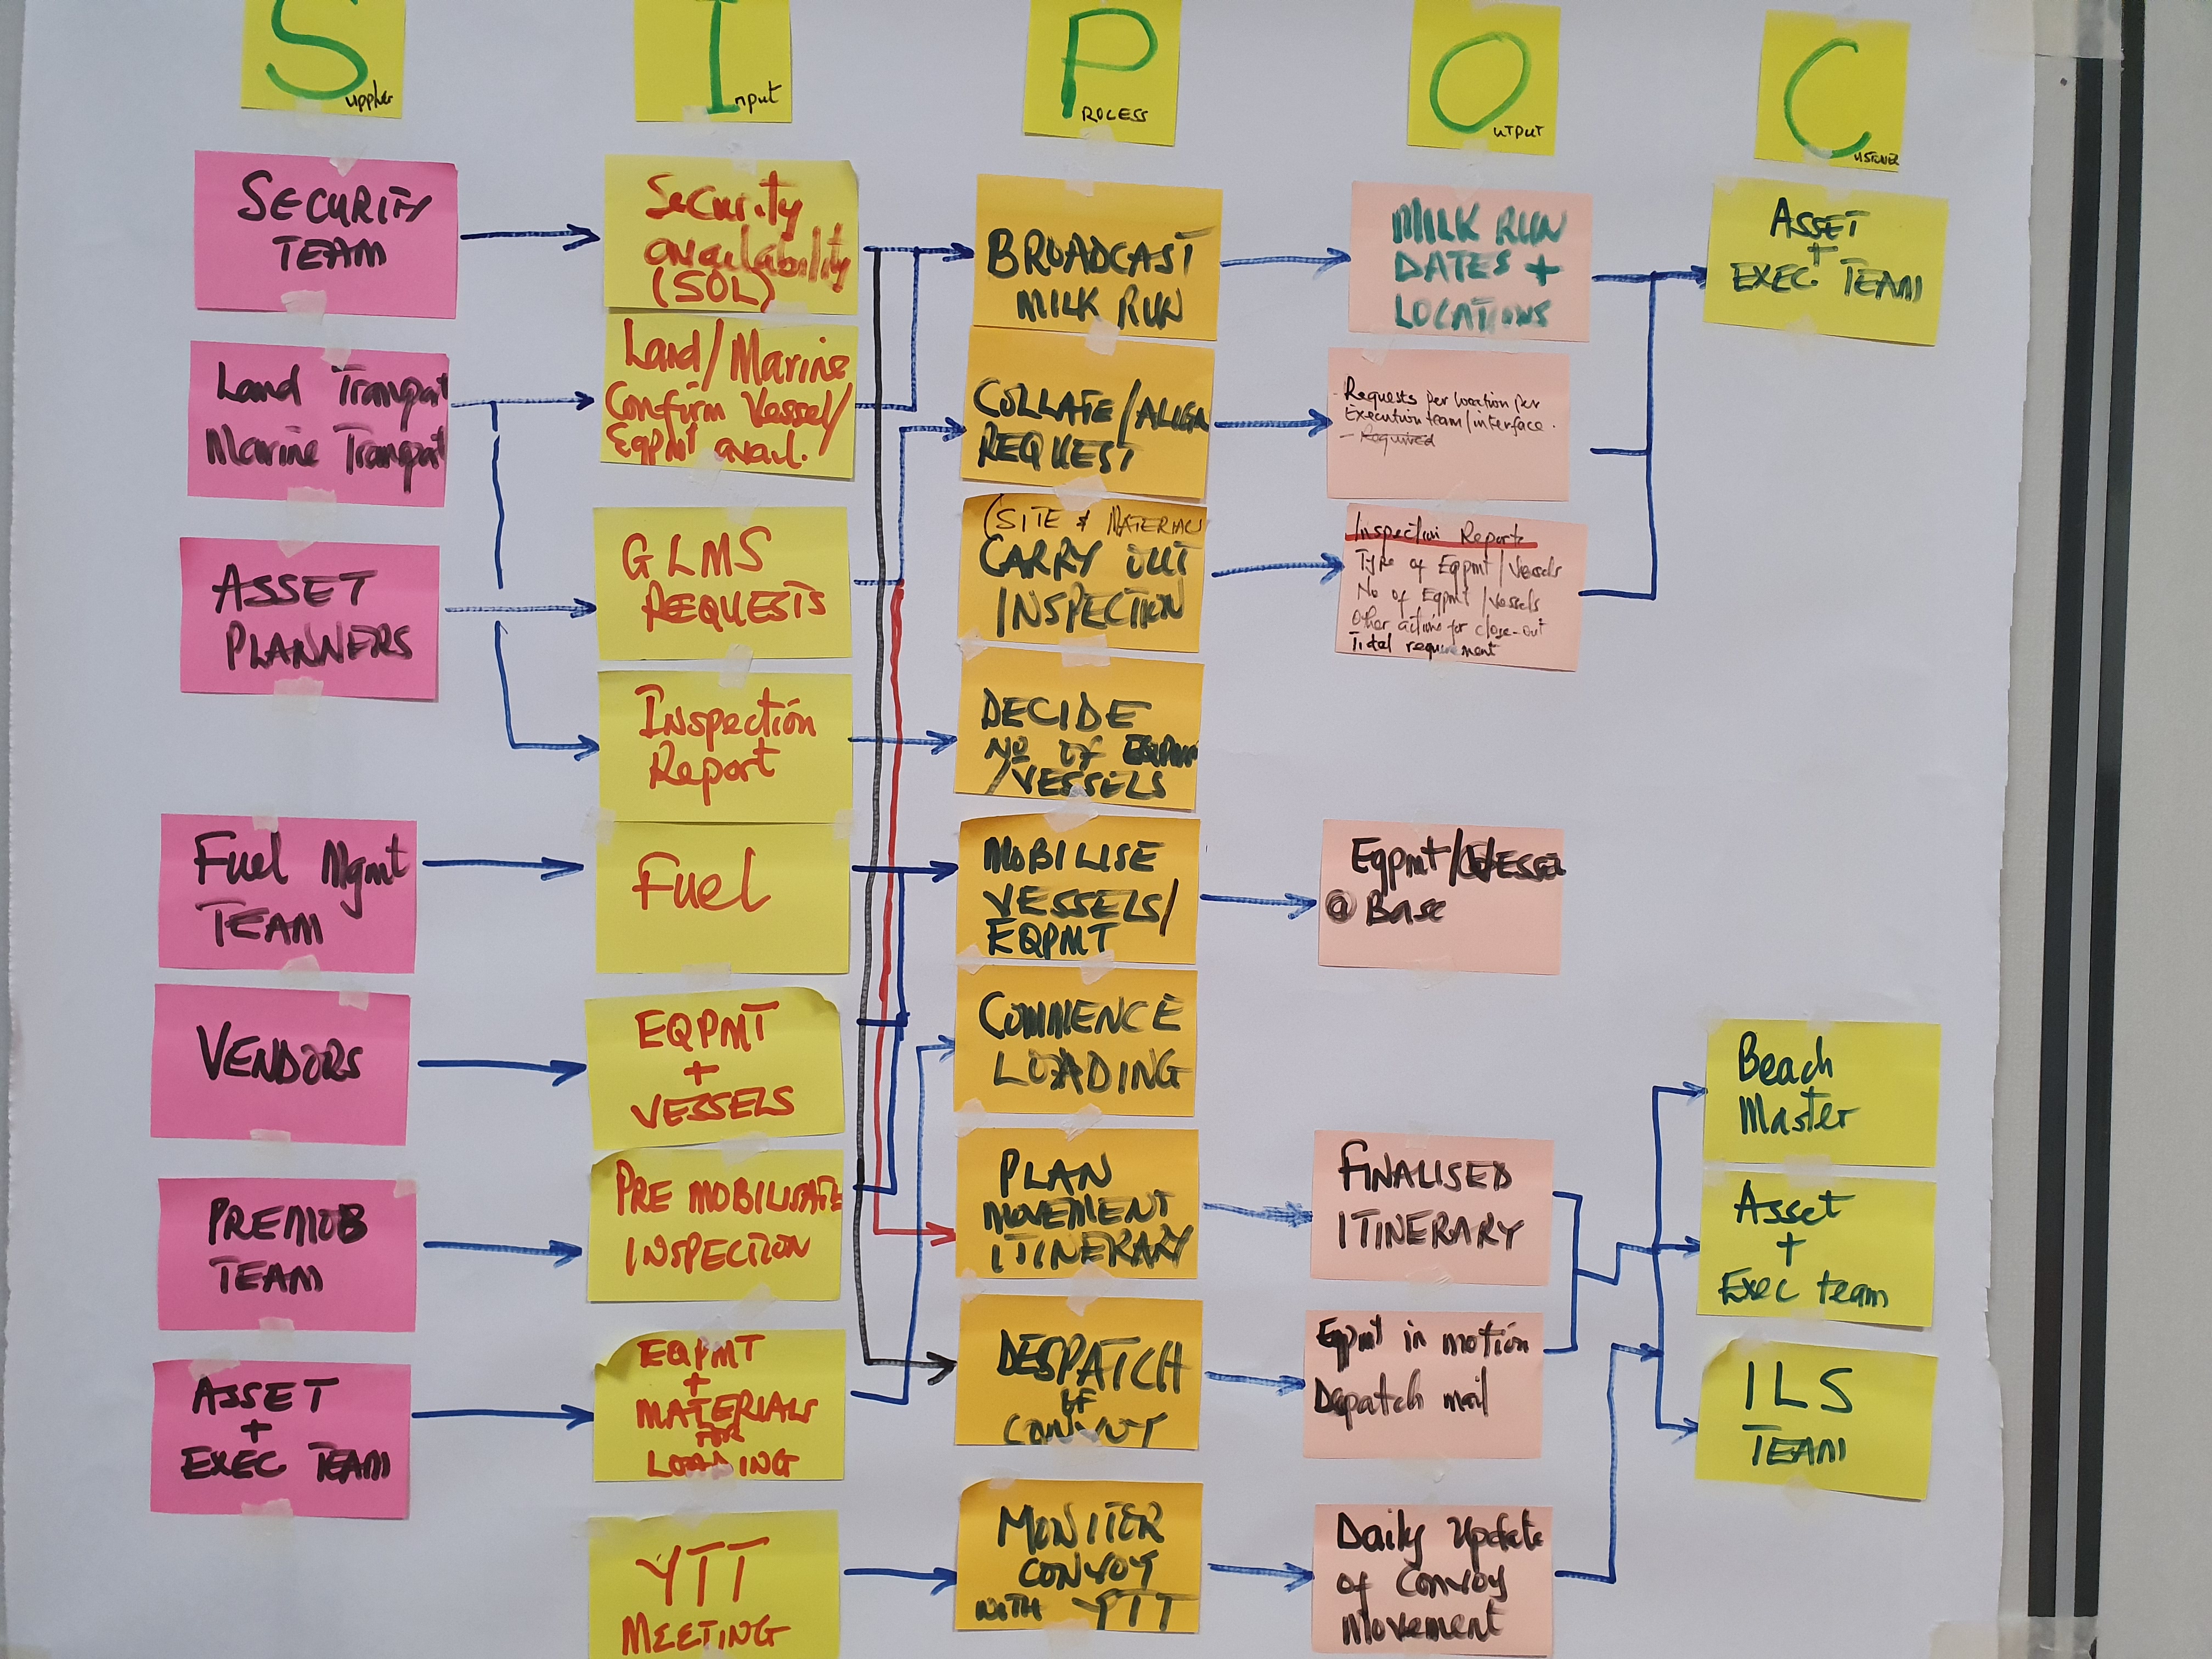 S
upplier
I
nput
P
ROCESS
O
UTPUT
C
USTOMER
SECURITY
TEAM
Land Transport
Marine Transport
ASSET
PLANNERS
Fuel Mgmt
TEAM
VENDORS
PREMOB
TEAM
ASSET
+
EXEC TEAM
Security
availability
(SOL)
Land/Marine
Confirm Vessel/
Eqpmt avail.
GLMS
REQUESTS
Inspection
Report
Fuel
EQPMT
+
VESSELS
PRE MOBILISATE
INSPECTION
EQPMT
+
MATERIALS
FOR
LOADING
YTT
MEETING
BROADCAST
MILK RUN
COLLATE/ALIGN
REQUEST
(SITE & MATERIALS
CARRY OUT
INSPECTION
DECIDE
NO OF EQPMT
/VESSELS
MOBILISE
VESSELS/
EQPMT
COMMENCE
LOADING
PLAN
MOVEMENT
ITINERARY
DESPATCH
OF
CONVOY
MONITER
CONVOY
WITH YTT
MILK RUN
DATES +
LOCATIONS
- Requests per location per
Execution team/interface.
- Required
Inspection Reports
Type of Eqpmt/Vessels
No of Eqpmt/Vessels
Other actions for close-out
Tidal requirement
Eqpmt/VESSEL
@ Base
FINALISED
ITINERARY
Eqpmt in motion
Depatch mail
Daily Update
of Convoy
Movement
ASSET
+
EXEC. TEAM
Beach
Master
Asset
+
Exec team
ILS
TEAM